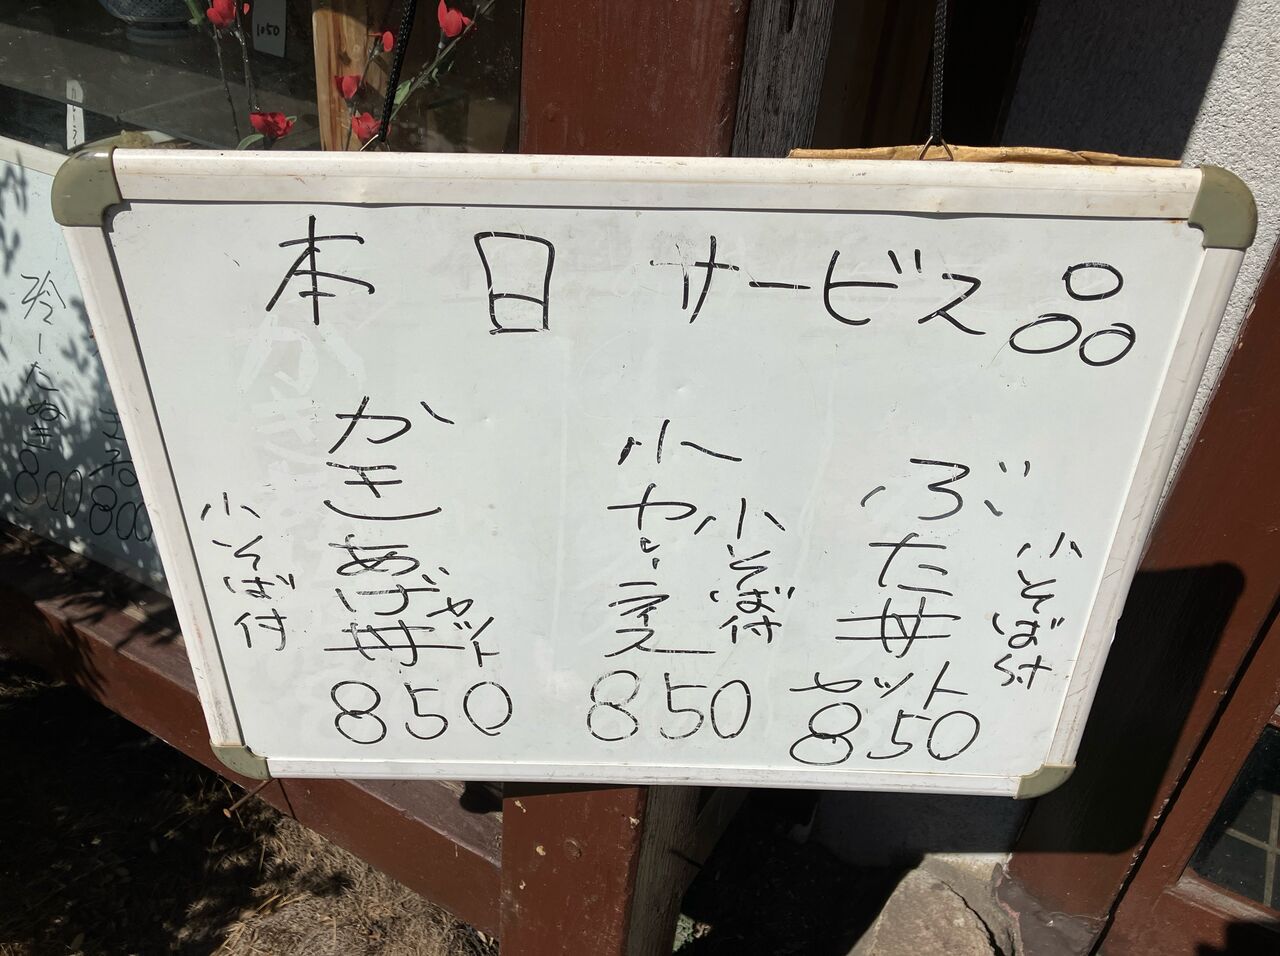 本日サービス品
ぶた丼
セット
小そば付
850
小
カレーライス
小そば付
850
かきあげ丼
セット
小そば付
850
冷したぬき
800
800
1050